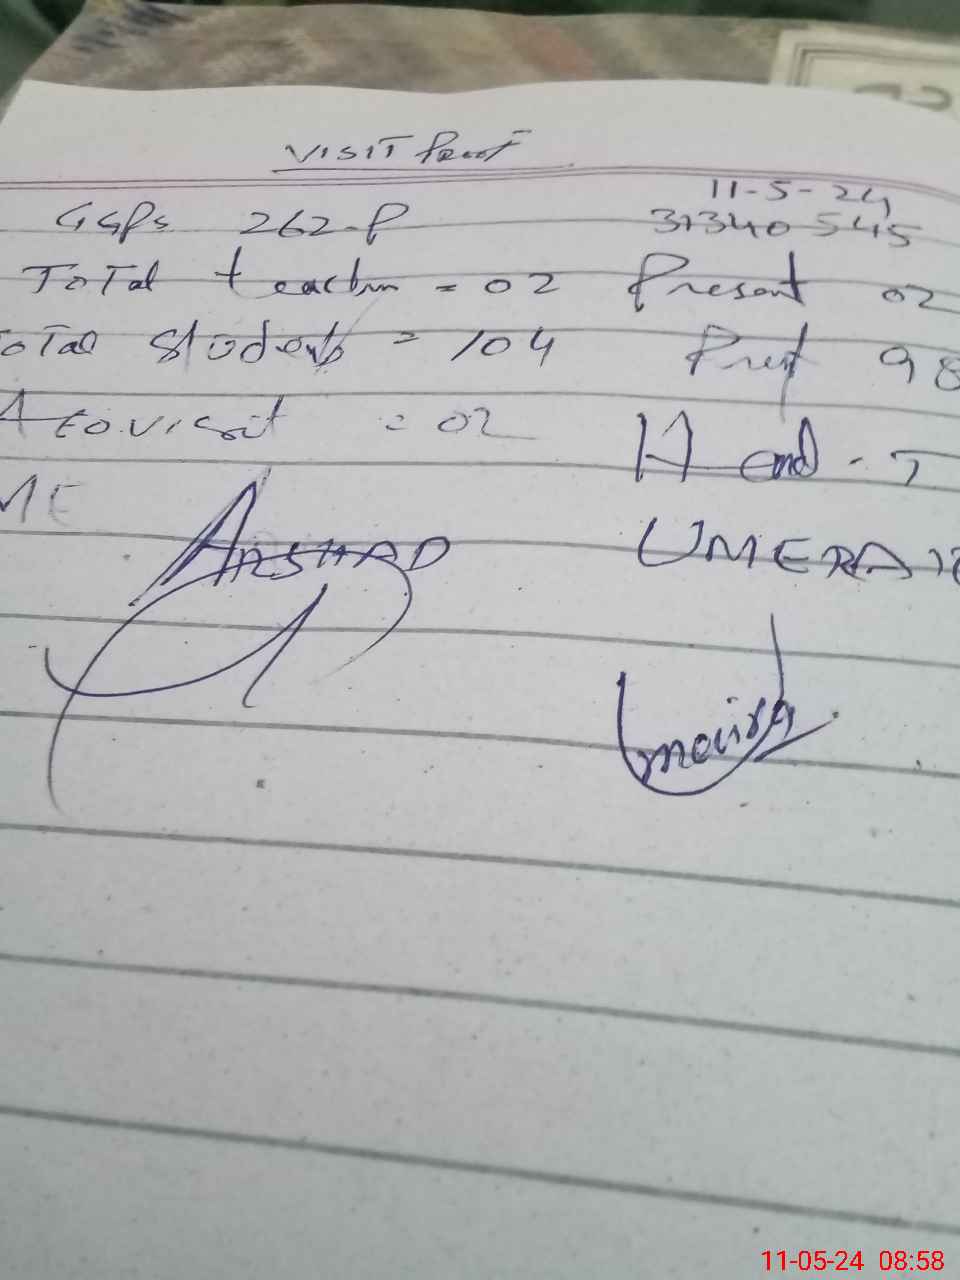 VISIT Proof
11-5-24
GGPS 262-P 31340545
ToTal teacher = 02 Present 02
oTal Students = 104 Pret 98
AEO visit = 02 Head - T
ME
ARSHAD UMERA
11-05-24 08:58